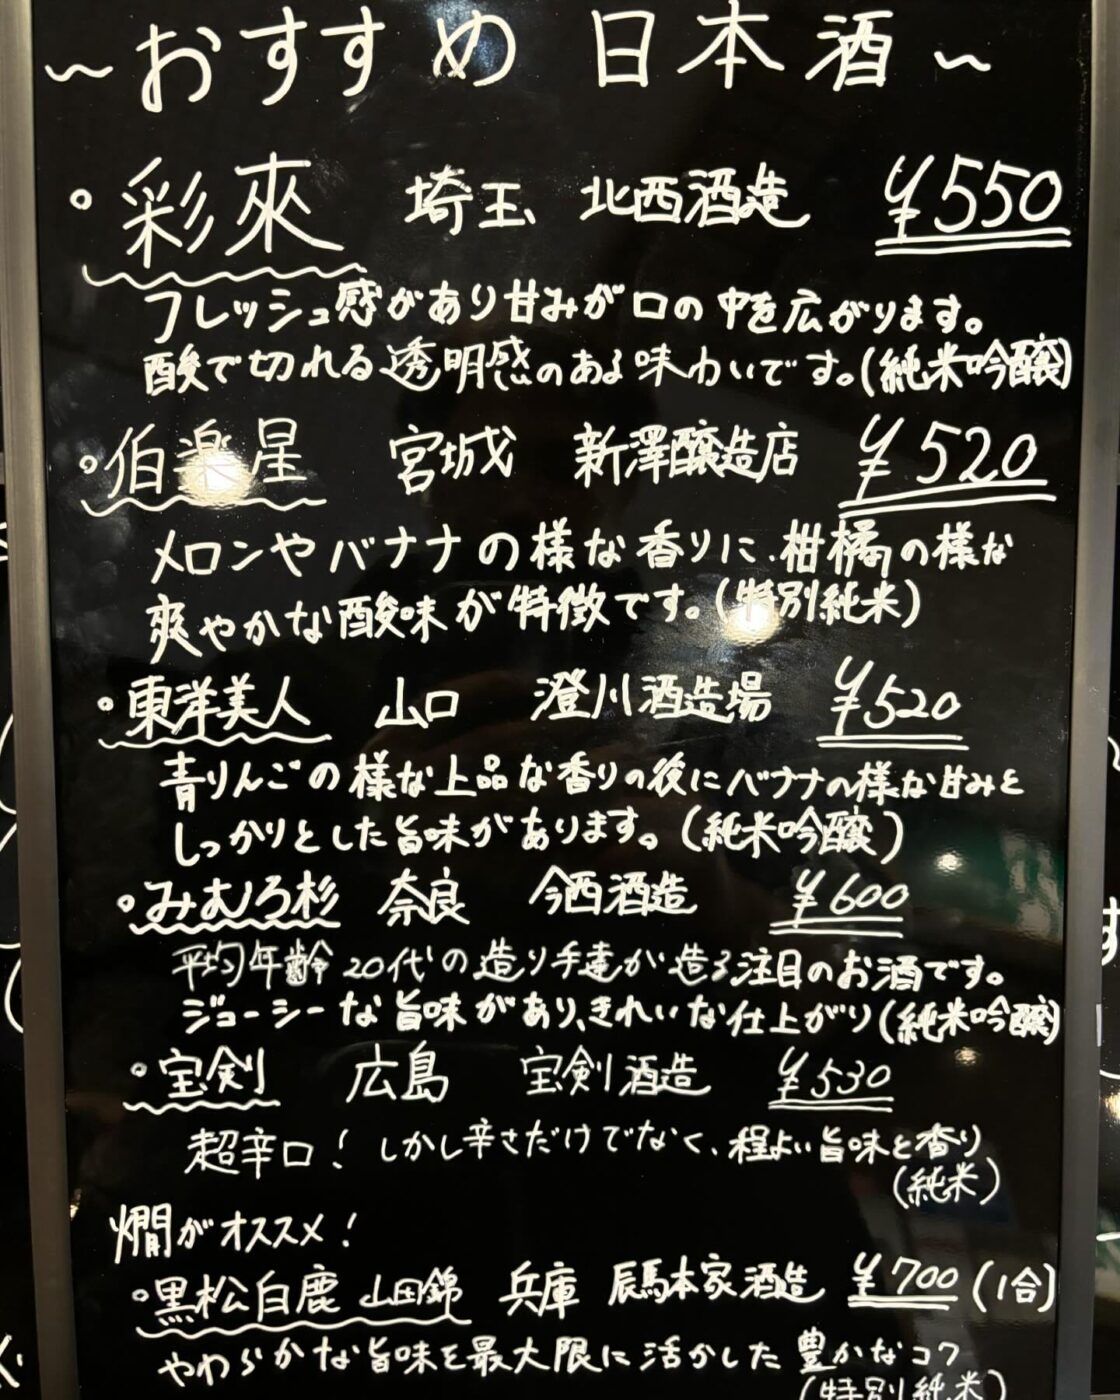 ～おすすめ 日本酒～
。彩來 埼玉 北西酒造 ¥550
フレッシュ感があり甘みが口の中を広がります。
酸で切れる透明感のある味わいです。(純米吟醸)
。伯楽星 宮城 新澤醸造店 ¥520
メロンやバナナの様な香りに、柑橘の様な
爽やかな酸味が特徴です。(特別純米)
。東洋美人 山口 澄川酒造場 ¥520
青りんごの様な上品な香りの後にバナナの様な甘みと
しっかりとした旨味があります。(純米吟醸)
。みむろ杉 奈良 今西酒造 ¥600
平均年齢20代の造り手達が造る注目のお酒です。
ジューシーな旨味があり、きれいな仕上がり(純米吟醸)
。宝剣 広島 宝剣酒造 ¥530
超辛口！しかし辛さだけでなく、程よい旨味と香り
(純米)
燗がオススメ！
。黒松白鹿 山田錦 兵庫 辰馬本家酒造 ¥700 (1合)
やわらかな旨味を最大限に活かした豊かなコク
(特別純米)